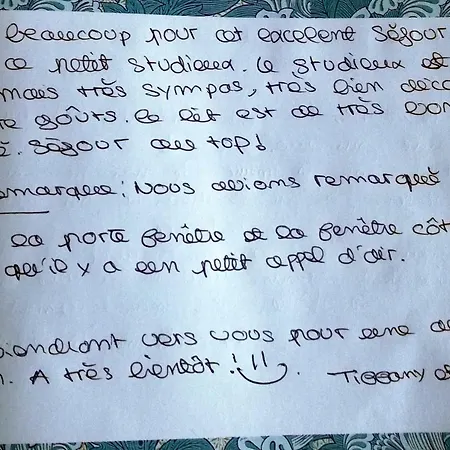 beaucoup pour cet excelent séjour
ce petit studieux. Le studieux est
mais très sympas, très bien déco
re goûts. Le lit est de très bon
é. Séjour au top!
emarque: Nous avions remarqué
la porte fenêtre et la fenêtre côt
qu'il y a un petit appel d'air.
viendront vers vous pour une a
A très bientôt!!!
Tiffany et